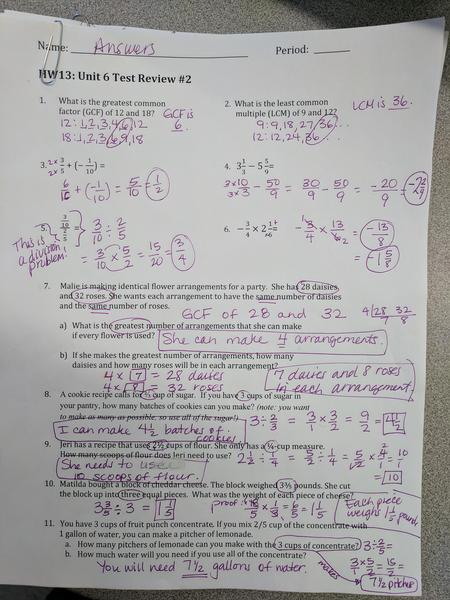 Name: Answers Period:
HW13: Unit 6 Test Review #2
1. What is the greatest common
factor (GCF) of 12 and 18?
GCF is
6.
12: 1, 2, 3, 4, 6, 12
18: 1, 2, 3, 6, 9, 18
2. What is the least common
multiple (LCM) of 9 and 12?
LCM is 36.
9: 9, 18, 27, 36, ...
12: 12, 24, 36, ...
3. 2× 3/2× 5 + (- 1/10) =
6/10 + (-1/10) = 5/10 = 1/2
4. 3 1/3 - 5 5/9
3×10/3×3 - 50/9 = 30/9 - 50/9 = -20/9 = -2 2/9
5. 3/10 / 2/5
3/10 ÷ 2/5
= 3/10 × 5/2 = 15/20 = 3/4
This is
a division
problem!
6. - 3/4 × 2 1/6
= -13/8
= -1 5/8
7. Malie is making identical flower arrangements for a party. She has 28 daisies
and 32 roses. She wants each arrangement to have the same number of daisies
and the same number of roses.
GCF of 28 and 32
4 28 32
7 8
a) What is the greatest number of arrangements that she can make
if every flower is used?
She can make 4 arrangements.
b) If she makes the greatest number of arrangements, how many
daisies and how many roses will be in each arrangement?
4 × 7 = 28 daisies
4 × 8 = 32 roses
7 daisies and 8 roses
in each arrangement
8. A cookie recipe calls for 2/3 cup of sugar. If you have 3 cups of sugar in
your pantry, how many batches of cookies can you make? (note: you want
to make as many as possible, to use all of the sugar!)
3 ÷ 2/3 = 3/1 × 3/2 = 9/2 = 4 1/2
I can make 4 1/2 batches of
cookies
9. Jeri has a recipe that uses 2 1/2 cups of flour. She only has a 1/4-cup measure.
How many scoops of flour does Jeri need to use?
2 1/2 ÷ 1/4 = 5/2 ÷ 1/4 = 5/2 × 4/1 = 10/1
= 10
She needs to use
10 scoops of flour.
10. Matilda bought a block of cheddar cheese. The block weighed 3 3/5 pounds. She cut
the block up into three equal pieces. What was the weight of each piece of cheese?
3 3/5 ÷ 3 = 1 1/5
proof: 18/5 × 1/3 = 6/5 = 1 1/5
Each piece
weighs 1 1/5 pounds
11. You have 3 cups of fruit punch concentrate. If you mix 2/5 cup of the concentrate with
1 gallon of water, you can make a pitcher of lemonade.
a. How many pitchers of lemonade can you make with the 3 cups of concentrate?
3 ÷ 2/5 =
b. How much water will you need if you use all of the concentrate?
makes
3/1 × 5/2 = 15/2 =
You will need 7 1/2 gallons of water.
7 1/2 pitchers